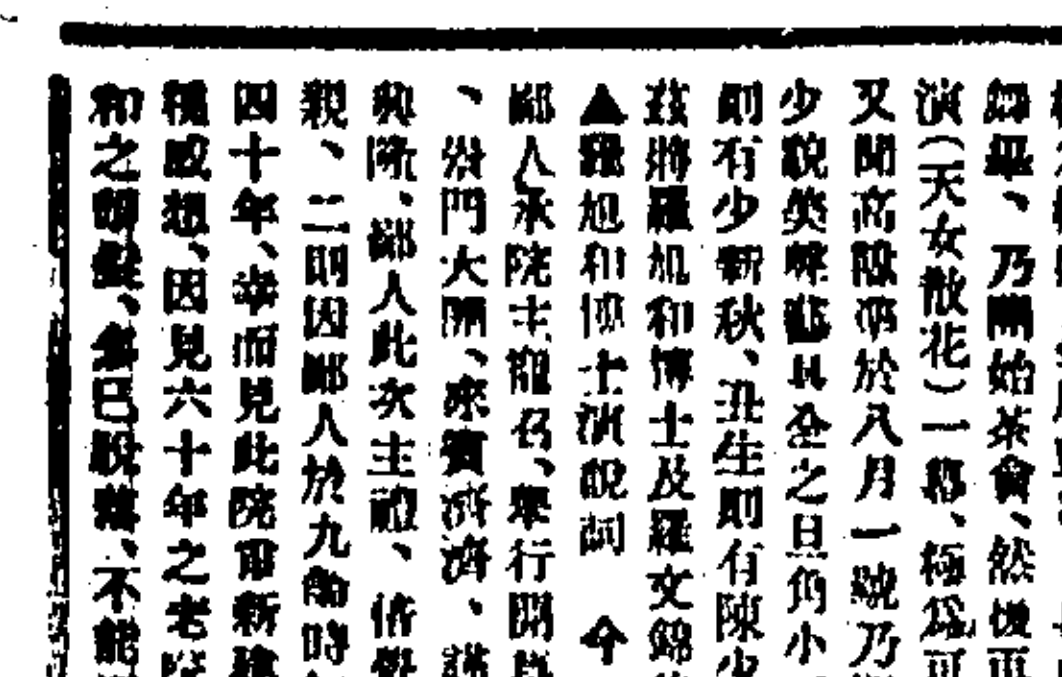 舞畢、乃開始茶會、然後再
演(天女散花)一齣、極為可
又聞高陞仍於八月一號乃
少貌美聲藝具全之旦角小
則有少新秋、丑生則有陳少
茲將羅旭和博士及羅文錦
▲羅旭和博士演說詞 今
鄙人承院主寵召、舉行開幕
、啓門大開、來賓濟濟、諸
與隆、鄙人此次主禮、
親、二則因鄙人於九齡時
四十年、幸而見此院重新建
種感想、因見六十年之老院
和之頭髮、多已脫落、不能